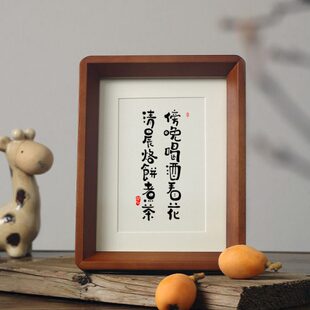 傍晚喝酒看花
清晨烙餅煮茶